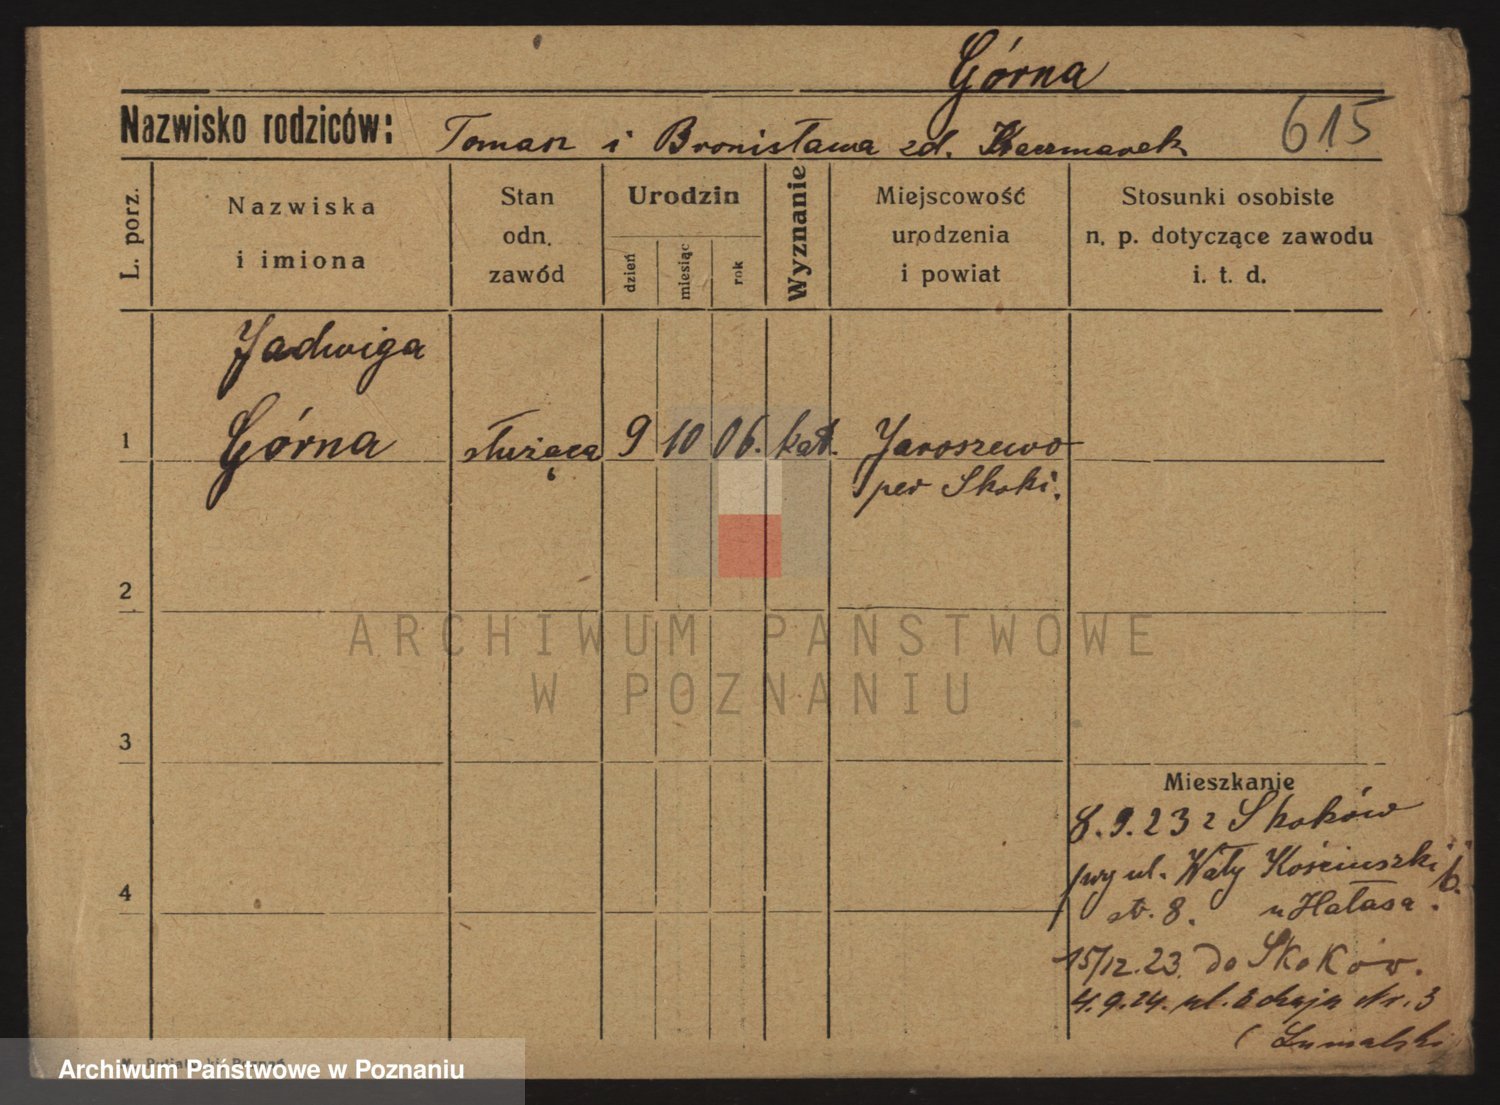 Górna
615
Nazwisko rodziców: Tomasz i Bronisława zd. Kaczmarek
L. porz.
Nazwiska
i imiona
Stan
odn.
zawód
Urodzin
dzień
miesiąc
rok
Wyznanie
Miejscowość
urodzenia
i powiat
Stosunki osobiste
n. p. dotyczące zawodu
i. t. d.
Jadwiga
1 Górna służąca 9 10 06. kat. Jaroszewo
pow Skoki.
2
ARCHIWUM PAŃSTWOWE
W POZNANIU
3
Mieszkanie
8.9.23 z Skoków
przy ul. Wały Kościuszki
4
st. 8. u Hałasa.
15/12.23. do Skoków.
4.9.24. ul. 3 maja Nr. 3
Poznań
Archiwum Państwowe w Poznaniu